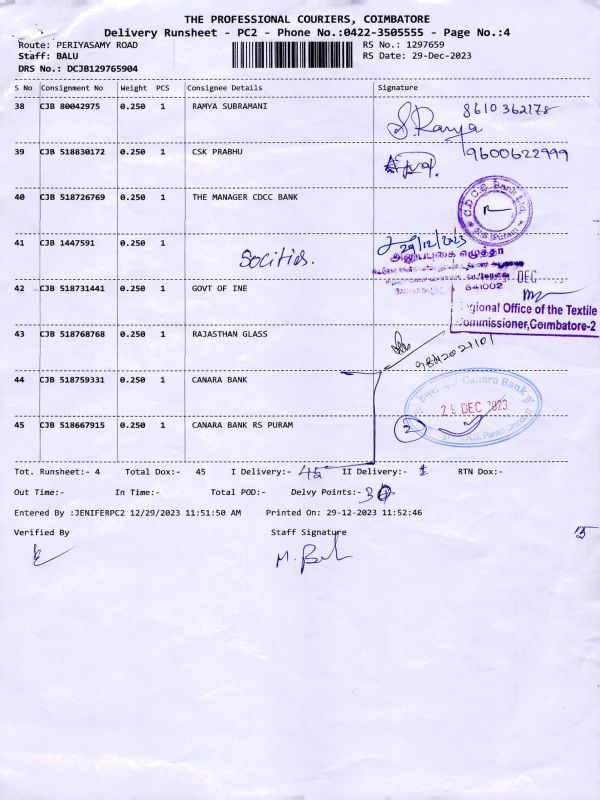 THE PROFESSIONAL COURIERS, COIMBATORE
Delivery Runsheet - PC2 - Phone No.:0422-3505555 - Page No.:4
Route: PERIYASAMY ROAD
RS No.: 1297659
Staff: BALU
RS Date: 29-Dec-2023
DRS No.: DCJB129765904
S No Consignment No Weight PCS Consignee Details Signature
38 CJB 80042975 0.250 1 RAMYA SUBRAMANI
8610362178
S. Ramya
39 CJB 518830172 0.250 1 CSK PRABHU
9600622999
40 CJB 518726769 0.250 1 THE MANAGER CDCC BANK
41 CJB 1447591 0.250 1
Socities.
29/12/2023
641002
DEC
42 CJB 518731441 0.250 1 GOVT OF INE
gional Office of the Textile
ommissioner,Coimbatore-2
43 CJB 518768768 0.250 1 RAJASTHAN GLASS
44 CJB 518759331 0.250 1 CANARA BANK
Canara Bank
DEC 2023
45 CJB 518667915 0.250 1 CANARA BANK RS PURAM
2
Tot. Runsheet:- 4 Total Dox:- 45 I Delivery:- 45 II Delivery:- RTN Dox:-
Out Time:- In Time:- Total POD:- Delvy Points:-
Entered By :JENIFERPC2 12/29/2023 11:51:50 AM Printed On: 29-12-2023 11:52:46
Verified By Staff Signature